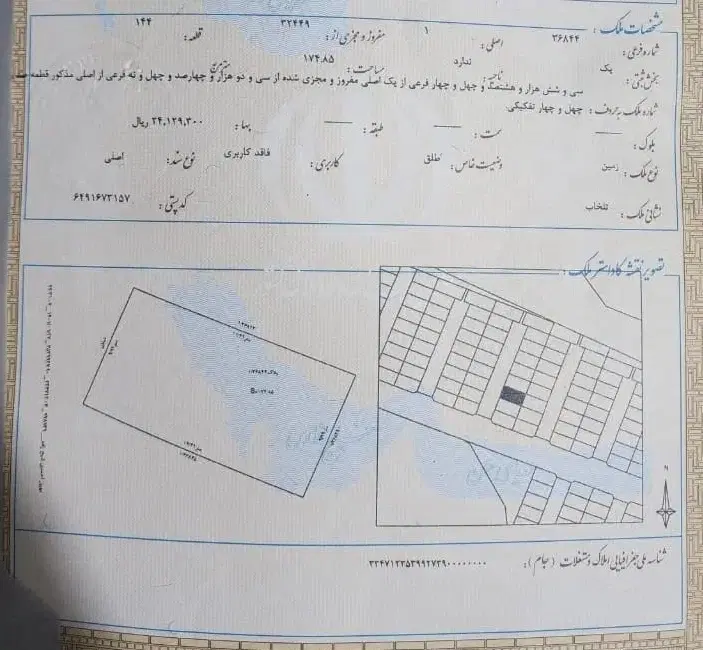 مشخصات ملک :
شماره فرعی : ۳۶۸۴۴ اصلی : ۱ مفروز و مجزی از : ۳۲۴۴۹ قطعه : ۱۴۴
بخش ثبتی : یک ناحیه : ندارد مساحت : ۱۷۴.۸۵ مترمربع
سی و شش هزار و هشتصد و چهل و چهار فرعی از یک اصلی مفروز و مجزی شده از سی و دو هزار و چهارصد و چهل و نه فرعی از اصلی مذکور قطعه صد
شماره ملک به حروف : چهل و چهار تفکیکی.
بلوک : —— سمت : —— طبقه : —— بها : ۲۴,۱۲۹,۳۰۰ ریال
نوع ملک : زمین وضعیت خاص : طلق کاربری : فاقد کاربری نوع سند : اصلی
نشانی ملک : تلخاب کدپستی : ۶۴۹۱۶۷۳۱۵۷
تصویر نقشه کاداستر ملک :
N
شناسه ملی جغرافیایی املاک و مستغلات ( جام ) : ۳۳۴۷۱۲۳۵۳۹۹۲۷۳۹۰۰۰۰۰۰۰۰